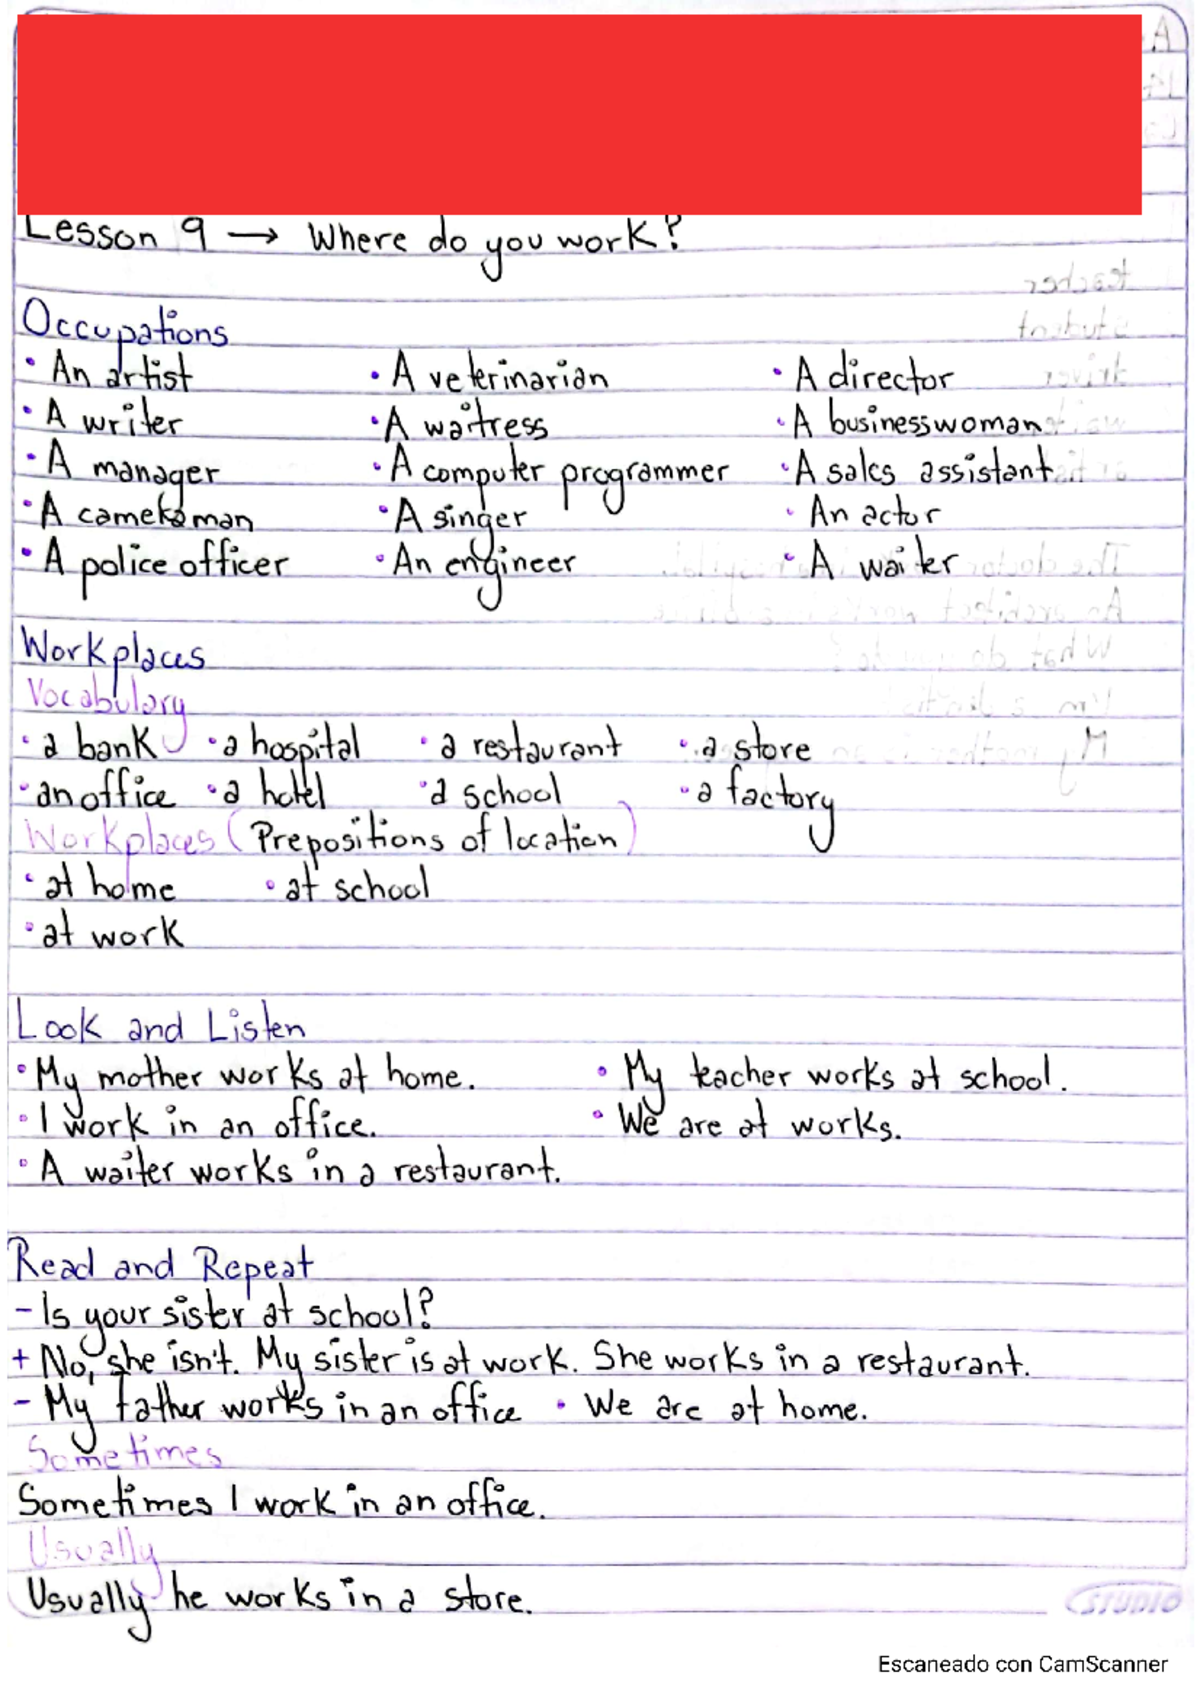 Lesson 9 → Where do you work?
Occupations
• An artist • A veterinarian • A director
• A writer • A waitress • A businesswoman
• A manager • A computer programmer • A sales assistant
• A cameraman • A singer • An actor
• A police officer • An engineer • A waiter
Workplaces
Vocabulary
• a bank • a hospital • a restaurant • a store
• an office • a hotel • a school • a factory
Workplaces (Prepositions of location)
• at home • at school
• at work
Look and Listen
• My mother works at home. • My teacher works at school.
• I work in an office. • We are at works.
• A waiter works in a restaurant.
Read and Repeat
- Is your sister at school?
+ No, she isn't. My sister is at work. She works in a restaurant.
- My father works in an office • We are at home.
Sometimes
Sometimes I work in an office.
Usually
Usually he works in a store.
STUDIO
Escaneado con CamScanner